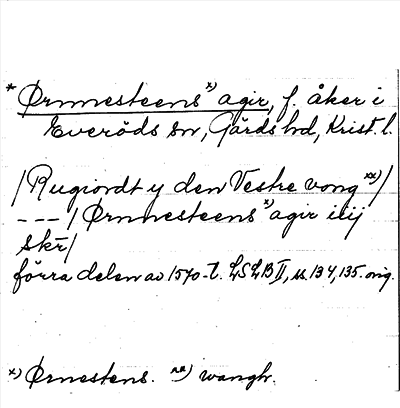 * Ørnnesteens x) agir, f. åker i
Everöds sn, Gärds hd, Krist. l.
/Rugiordt y den Vestre vong xx)/
---/Ørnnesteens x) agir iiij
skr/
förra delen av 1570-t. LSLB II, ss. 134, 135. orig.
x) Ørnestens. xx) wangh.